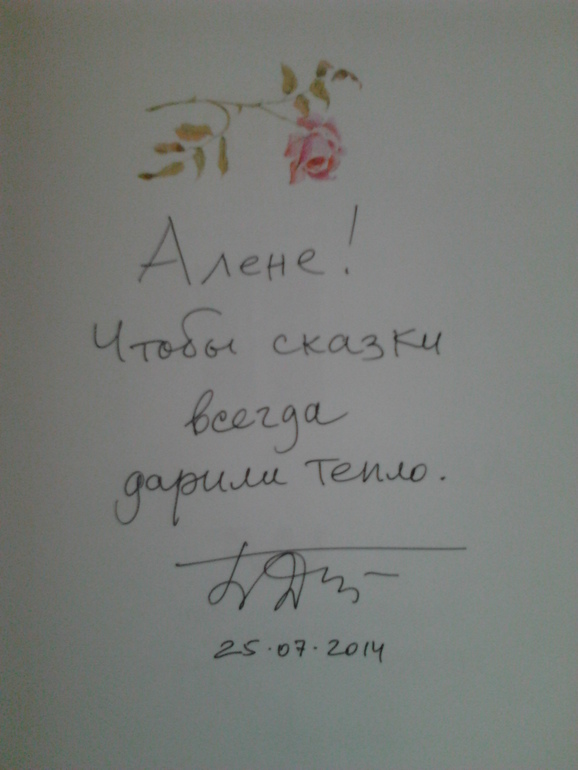 Алене!
Чтобы сказки
всегда
дарили тепло.
25.07.2014